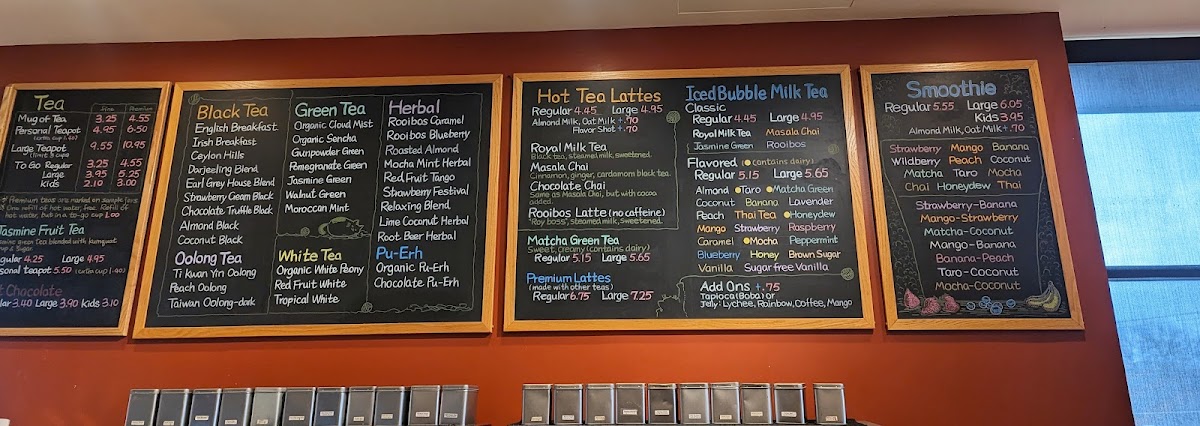 Tea
Fine Premium
Mug of Tea 3.25 4.55
Personal Teapot 4.95 6.50
Large Teapot 9.55 10.95
To Go Regular 3.25 4.55
Large 3.95 5.25
Kids 2.10 3.00
Premium teas are marked on sample tins.
One refill of hot water, free. Refill of
hot water, but in a to-go cup 1.00
Jasmine Fruit Tea
green tea blended with kumquat
4.25 Large 4.95
5.50
Chocolate
3.40 Large 3.90 Kids 3.10
Black Tea
English Breakfast
Irish Breakfast
Ceylon Hills
Darjeeling Blend
Earl Grey House Blend
Strawberry Cream Black
Chocolate Truffle Black
Almond Black
Coconut Black
Oolong Tea
Ti Kuan Yin Oolong
Peach Oolong
Taiwan Oolong-dark
Green Tea
Organic Cloud Mist
Organic Sencha
Gunpowder Green
Pomegranate Green
Jasmine Green
Walnut Green
Moroccan Mint
White Tea
Organic White Peony
Red Fruit White
Tropical White
Herbal
Rooibos Caramel
Rooibos Blueberry
Roasted Almond
Mocha Mint Herbal
Red Fruit Tango
Strawberry Festival
Relaxing Blend
Lime Coconut Herbal
Root Beer Herbal
Pu-Erh
Organic Pu-Erh
Chocolate Pu-Erh
Hot Tea Lattes
Regular 4.45 Large 4.95
Almond Milk, Oat Milk +.70
Flavor Shot +.70
Royal Milk Tea
Black tea, steamed milk, sweetened.
Masala Chai
Cinnamon, ginger, cardamom black tea.
Chocolate Chai
Same as Masala Chai, but with cocoa
added.
Rooibos Latte (no caffeine)
"Roy boss", steamed milk, sweetened.
Matcha Green Tea
Sweet, creamy (contains dairy)
Regular 5.15 Large 5.65
Premium Lattes
(made with other teas)
Regular 6.75 Large 7.25
Iced Bubble Milk Tea
Classic
Regular 4.45 Large 4.95
Royal Milk Tea Masala Chai
Jasmine Green Rooibos
Flavored (contains dairy)
Regular 5.15 Large 5.65
Almond Taro Matcha Green
Coconut Banana Lavender
Peach Thai Tea Honeydew
Mango Strawberry Raspberry
Caramel Mocha Peppermint
Blueberry Honey Brown Sugar
Vanilla Sugar free Vanilla
Add Ons +.75
Tapioca (Boba) or
Jelly: Lychee, Rainbow, Coffee, Mango
Smoothie
Regular 5.55 Large 6.05
Kids 3.95
Almond Milk, Oat Milk +.70
Strawberry Mango Banana
Wildberry Peach Coconut
Matcha Taro Mocha
Chai Honeydew Thai
Strawberry-Banana
Mango-Strawberry
Matcha-Coconut
Mango-Banana
Banana-Peach
Taro-Coconut
Mocha-Coconut